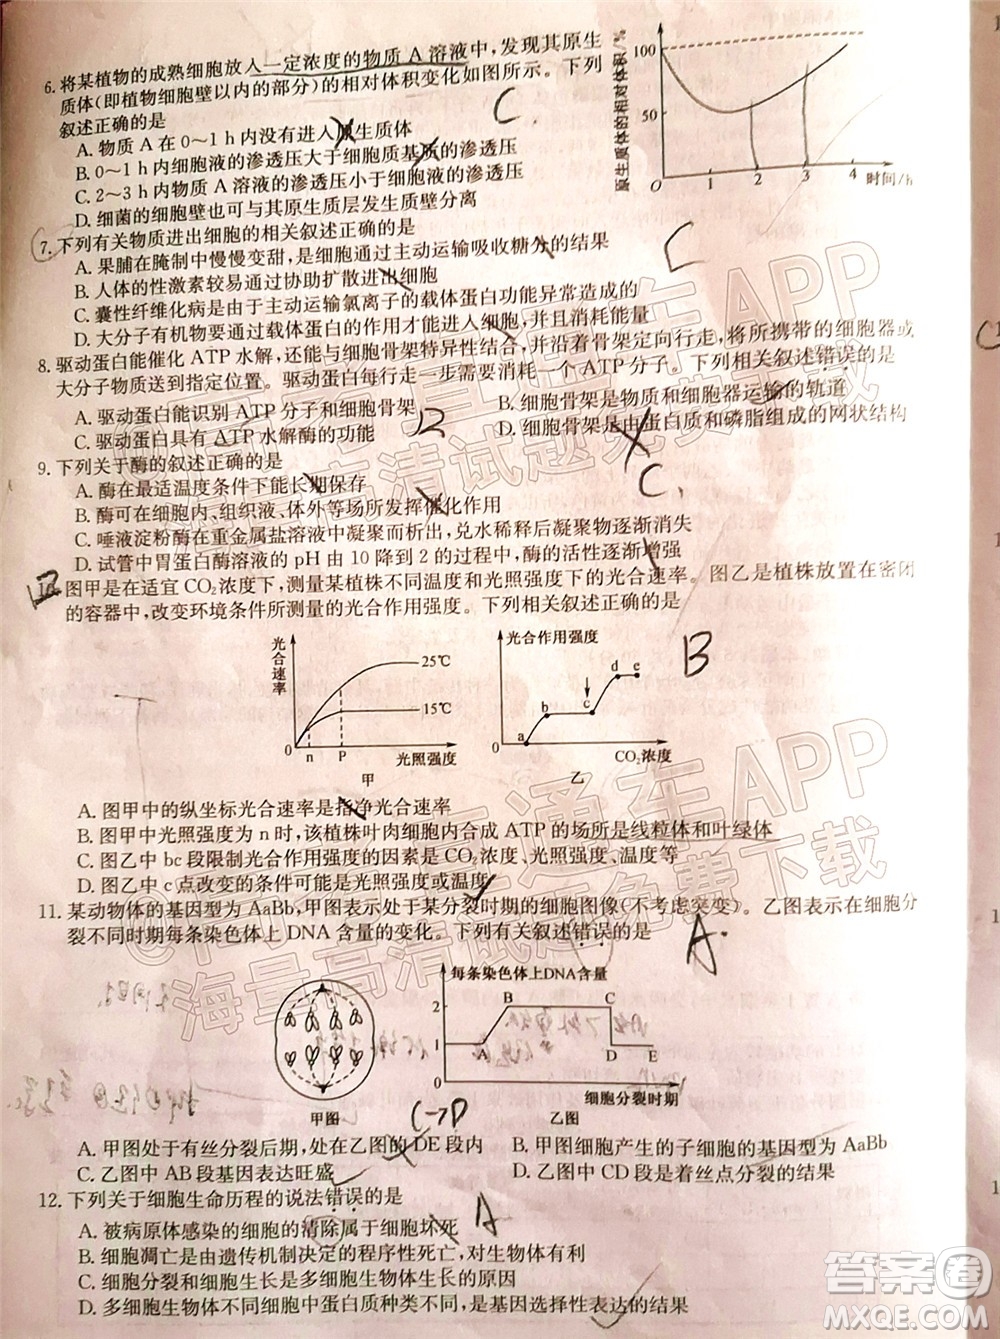 6. 将某植物的成熟细胞放入一定浓度的物质 A 溶液中，发现其原生
质体(即植物细胞壁以内的部分)的相对体积变化如图所示。下列
叙述正确的是
C.
A. 物质 A 在 0～1 h 内没有进入原生质体
B. 0～1 h 内细胞液的渗透压大于细胞质基质的渗透压
C. 2～3 h 内物质 A 溶液的渗透压小于细胞液的渗透压
D. 细菌的细胞壁也可与其原生质层发生质壁分离
原生质体的相对体积/%
100
50
0 1 2 3 4 时间/h
7. 下列有关物质进出细胞的相关叙述正确的是
C
A. 果脯在腌制中慢慢变甜，是细胞通过主动运输吸收糖分的结果
B. 人体的性激素较易通过协助扩散进出细胞
C. 囊性纤维化病是由于主动运输氯离子的载体蛋白功能异常造成的
D. 大分子有机物要通过载体蛋白的作用才能进入细胞，并且消耗能量
8. 驱动蛋白能催化 ATP 水解，还能与细胞骨架特异性结合，并沿着骨架定向行走，将所携带的细胞器或
大分子物质送到指定位置。驱动蛋白每行走一步需要消耗一个 ATP 分子。下列相关叙述错误的是
A. 驱动蛋白能识别 ATP 分子和细胞骨架
B. 细胞骨架是物质和细胞器运输的轨道
C. 驱动蛋白具有 ATP 水解酶的功能
D. 细胞骨架是由蛋白质和磷脂组成的网状结构
D
9. 下列关于酶的叙述正确的是
C.
A. 酶在最适温度条件下能长期保存
B. 酶可在细胞内、组织液、体外等场所发挥催化作用
C. 唾液淀粉酶在重金属盐溶液中凝聚而析出，兑水稀释后凝聚物逐渐消失
D. 试管中胃蛋白酶溶液的 pH 由 10 降到 2 的过程中，酶的活性逐渐增强
10. 图甲是在适宜 CO₂浓度下，测量某植株不同温度和光照强度下的光合速率。图乙是植株放置在密闭
的容器中，改变环境条件所测量的光合作用强度。下列相关叙述正确的是
B
光合速率
25℃
15℃
0 n P 光照强度
甲
光合作用强度
a b c d e
0 CO₂浓度
乙
A. 图甲中的纵坐标光合速率是指净光合速率
B. 图甲中光照强度为 n 时，该植株叶肉细胞内合成 ATP 的场所是线粒体和叶绿体
C. 图乙中 bc 段限制光合作用强度的因素是 CO₂浓度、温度等
D. 图乙中 c 点改变的条件可能是光照强度或温度
11. 某动物体的基因型为 AaBb，甲图表示处于某分裂时期的细胞图像(不考虑突变)。乙图表示在细胞分
裂不同时期每条染色体上 DNA 含量的变化。下列有关叙述错误的是
A.
甲图
每条染色体上DNA含量
2
1
A B C D E
0 细胞分裂时期
乙图
C→D
A. 甲图处于有丝分裂后期，处在乙图的 DE 段内
B. 甲图细胞产生的子细胞的基因型为 AaBb
C. 乙图中 AB 段基因表达旺盛
D. 乙图中 CD 段是着丝点分裂的结果
12. 下列关于细胞生命历程的说法错误的是
A
A. 被病原体感染的细胞的清除属于细胞坏死
B. 细胞凋亡是由遗传机制决定的程序性死亡，对生物体有利
C. 细胞分裂和细胞生长是多细胞生物体生长的基础
D. 多细胞生物体不同细胞中蛋白质种类不完全相同，是基因选择性表达的结果
答案圈
MXQE.COM